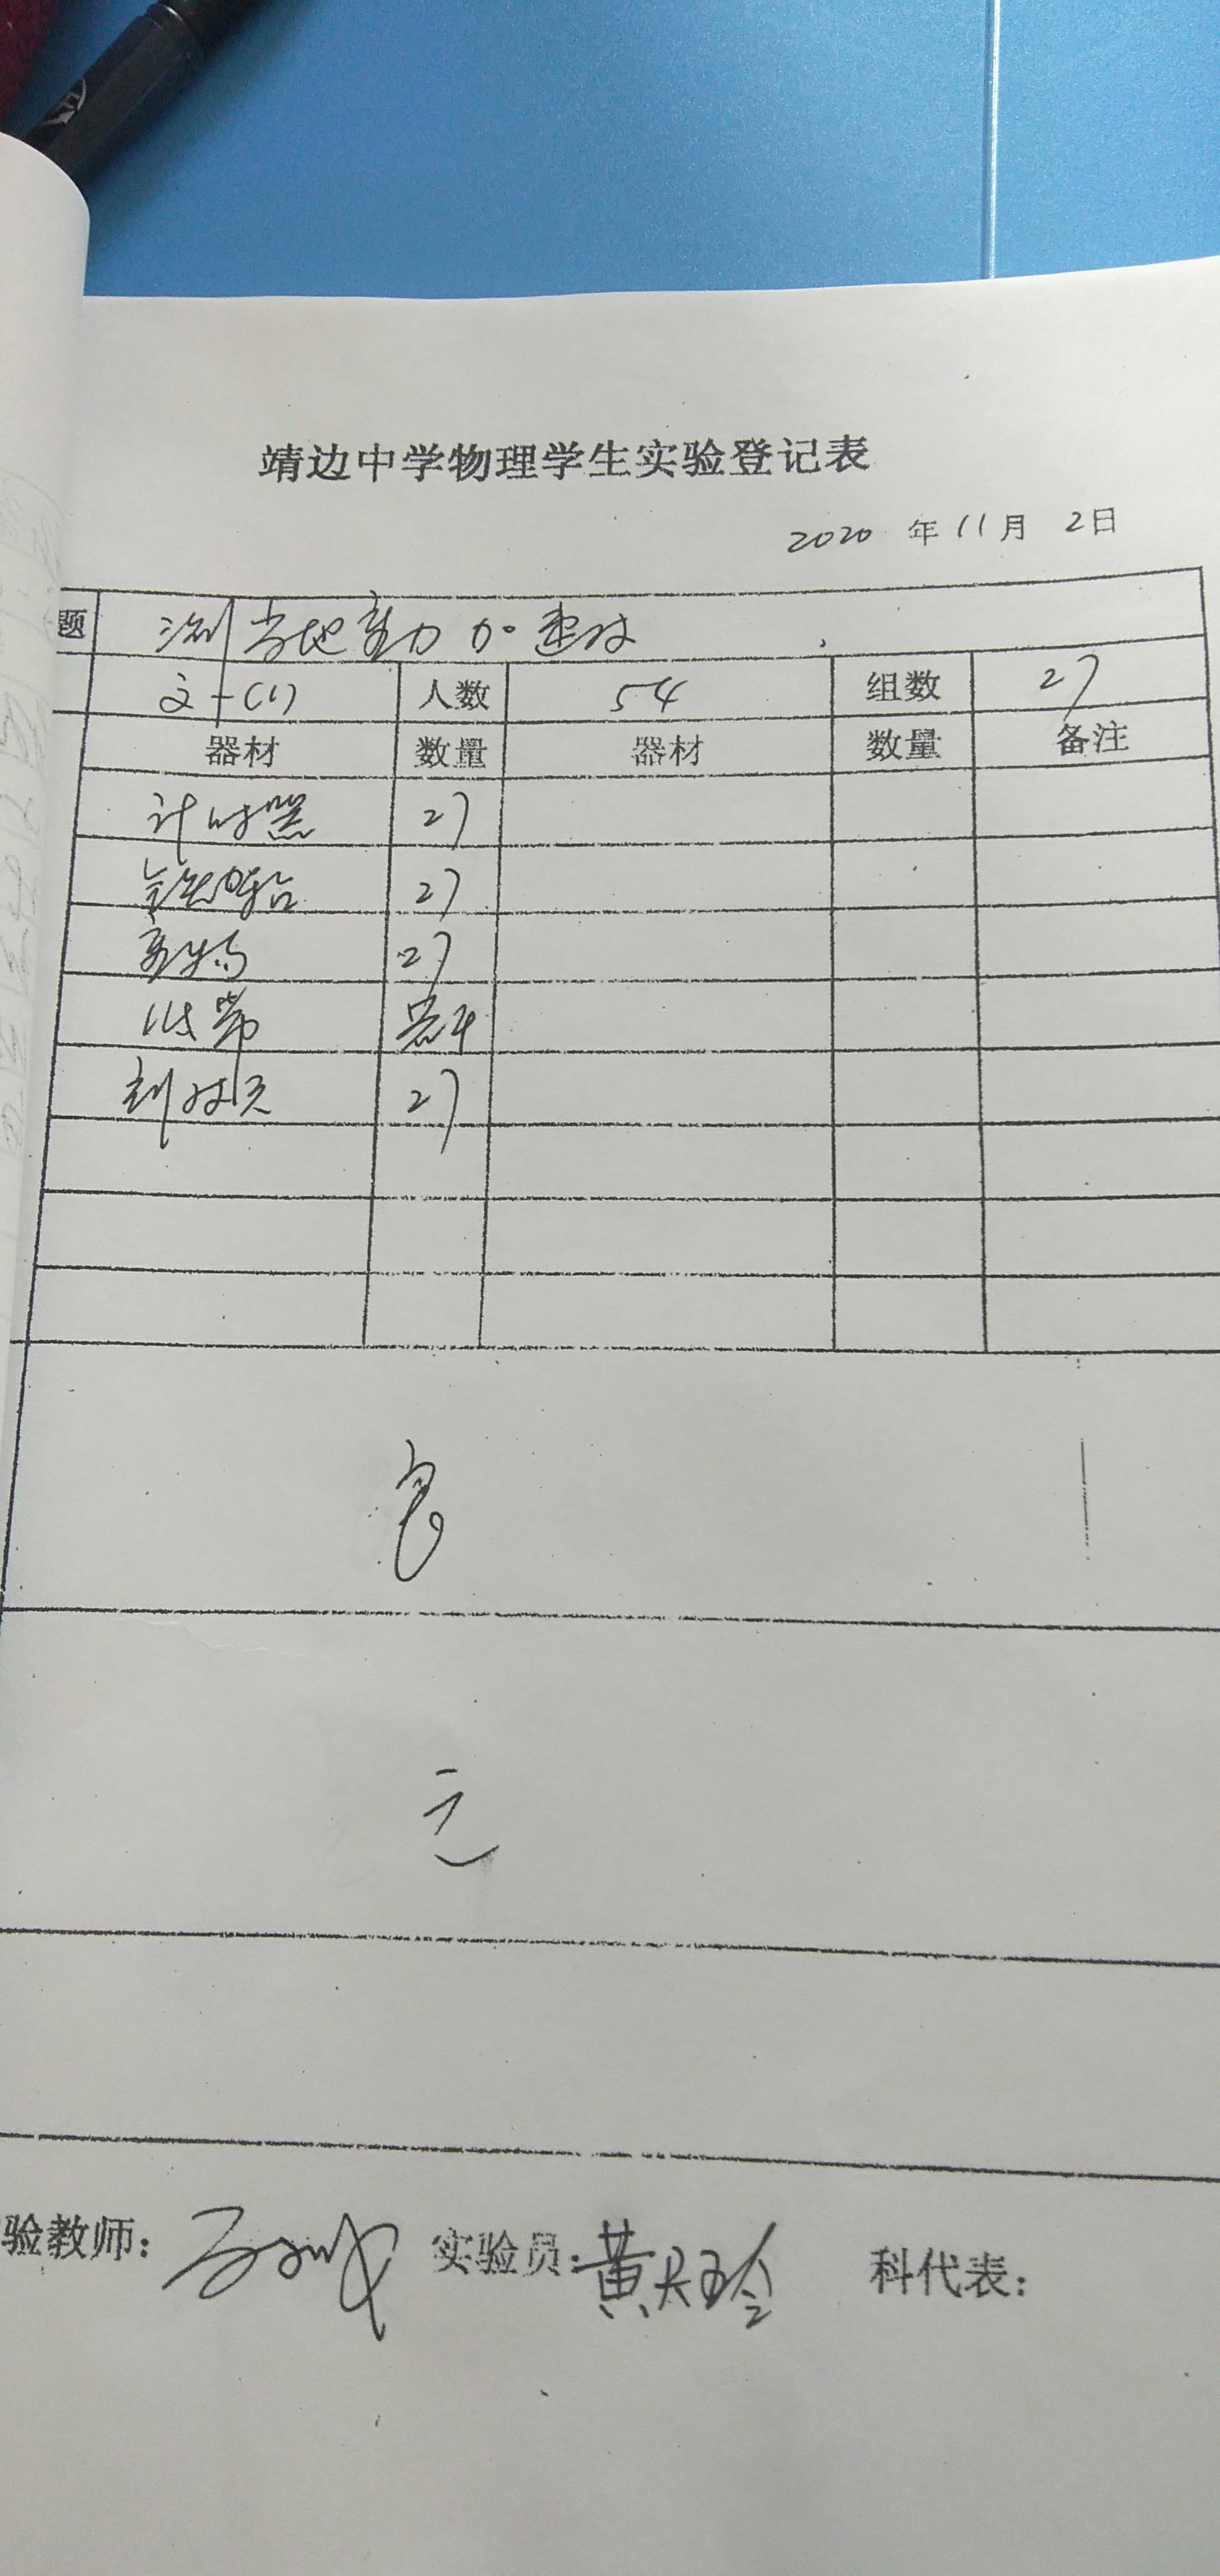 靖边中学物理学生实验登记表
2020 年 11 月 2 日
题 测当地重力加速度
高一(1) 人数 54 组数 27
器材 数量 器材 数量 备注
计时器 27
铁架台 27
重物 27
纸带 若干
刻度尺 27
良
无
验教师: 实验员: 黄天玲 科代表: